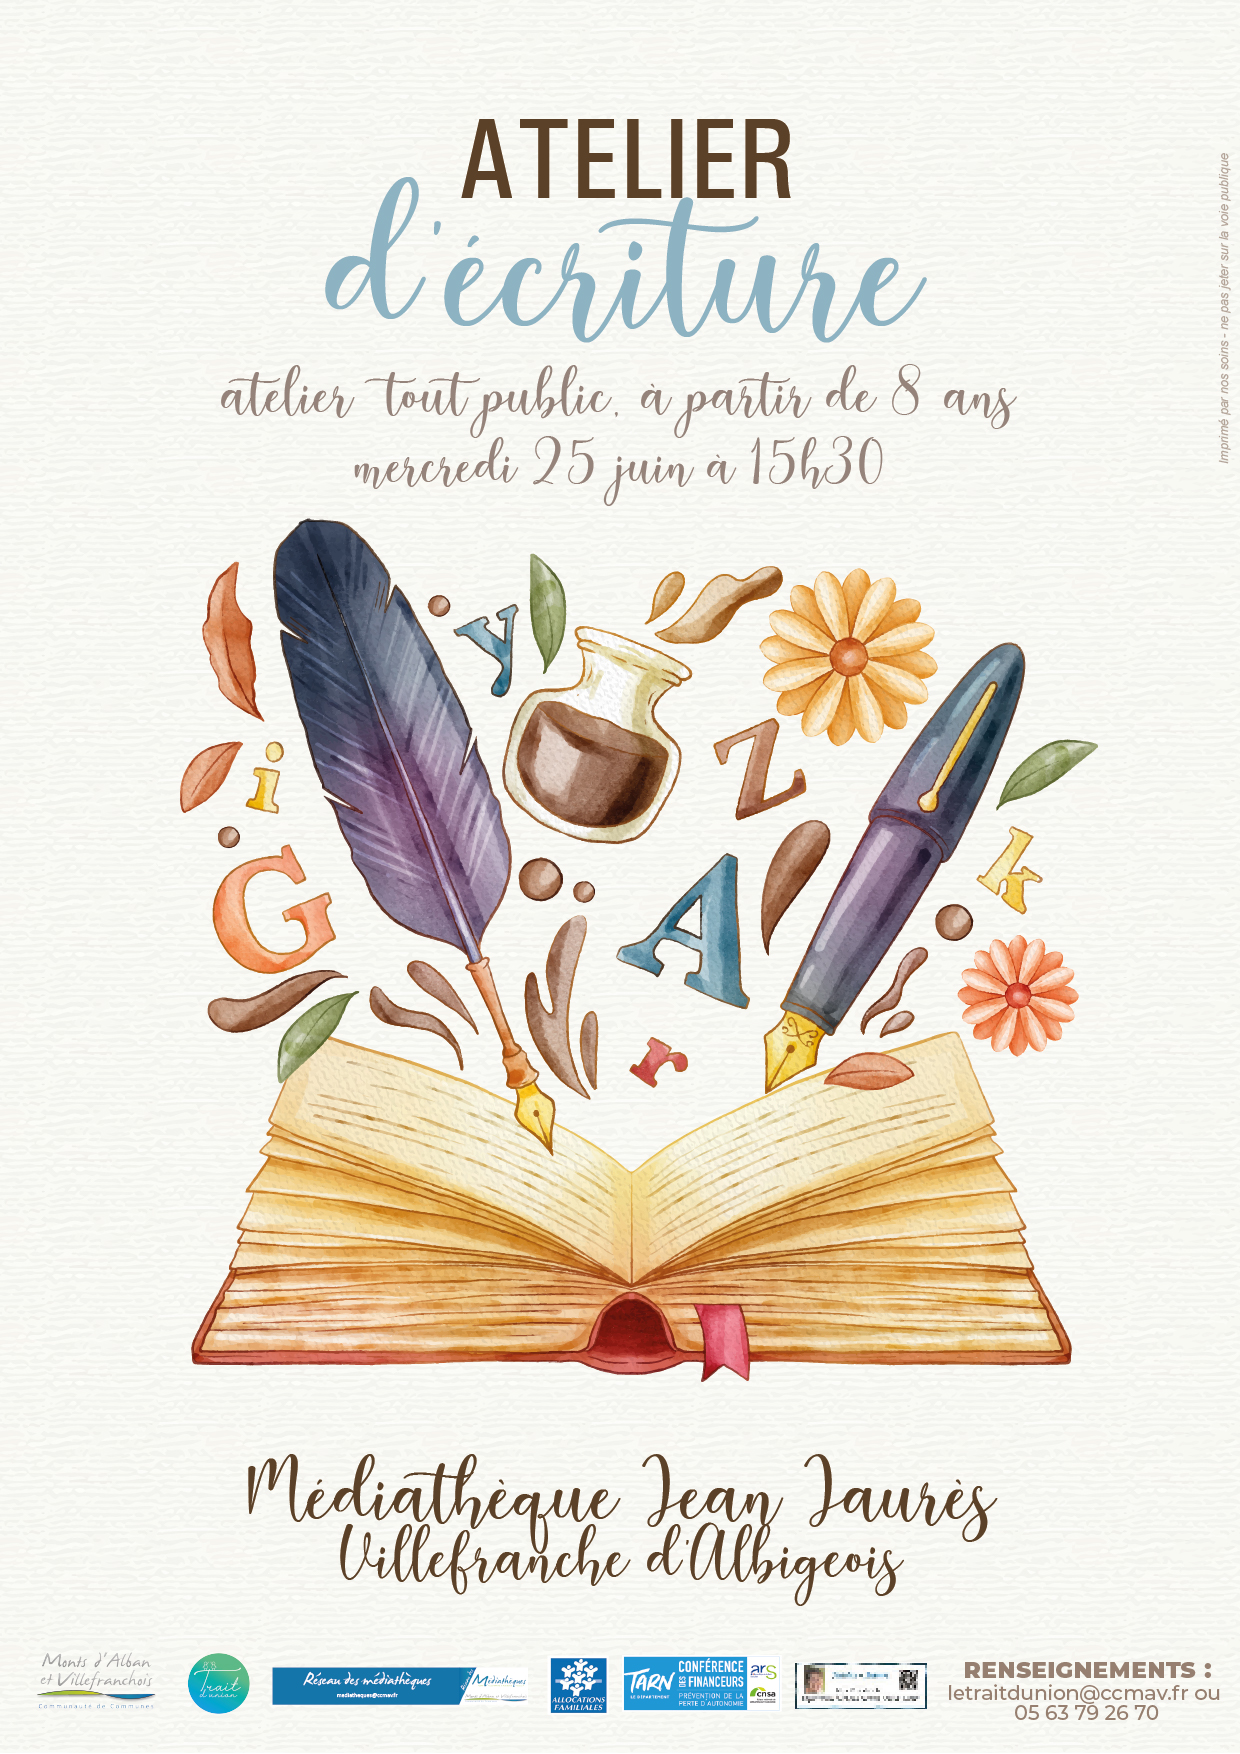 ATELIER
d'écriture
atelier tout public, à partir de 8 ans
mercredi 25 juin à 15h30
Imprimé par nos soins - ne pas jeter sur la voie publique
y
i
Z
k
G
A
r
Médiathèque Jean Jaurès
Villefranche d'Albigeois
Monts d'Alban
et Villefranchois
Communauté de Communes
Trait
d'union
Réseau des médiathèques
mediatheques@ccmav.fr
Médiathèques
ALLOCATIONS
FAMILIALES
TARN
LE DÉPARTEMENT
CONFÉRENCE
DES FINANCEURS
PRÉVENTION DE LA
PERTE D'AUTONOMIE
ars
cnsa
RENSEIGNEMENTS :
letraitdunion@ccmav.fr ou
05 63 79 26 70